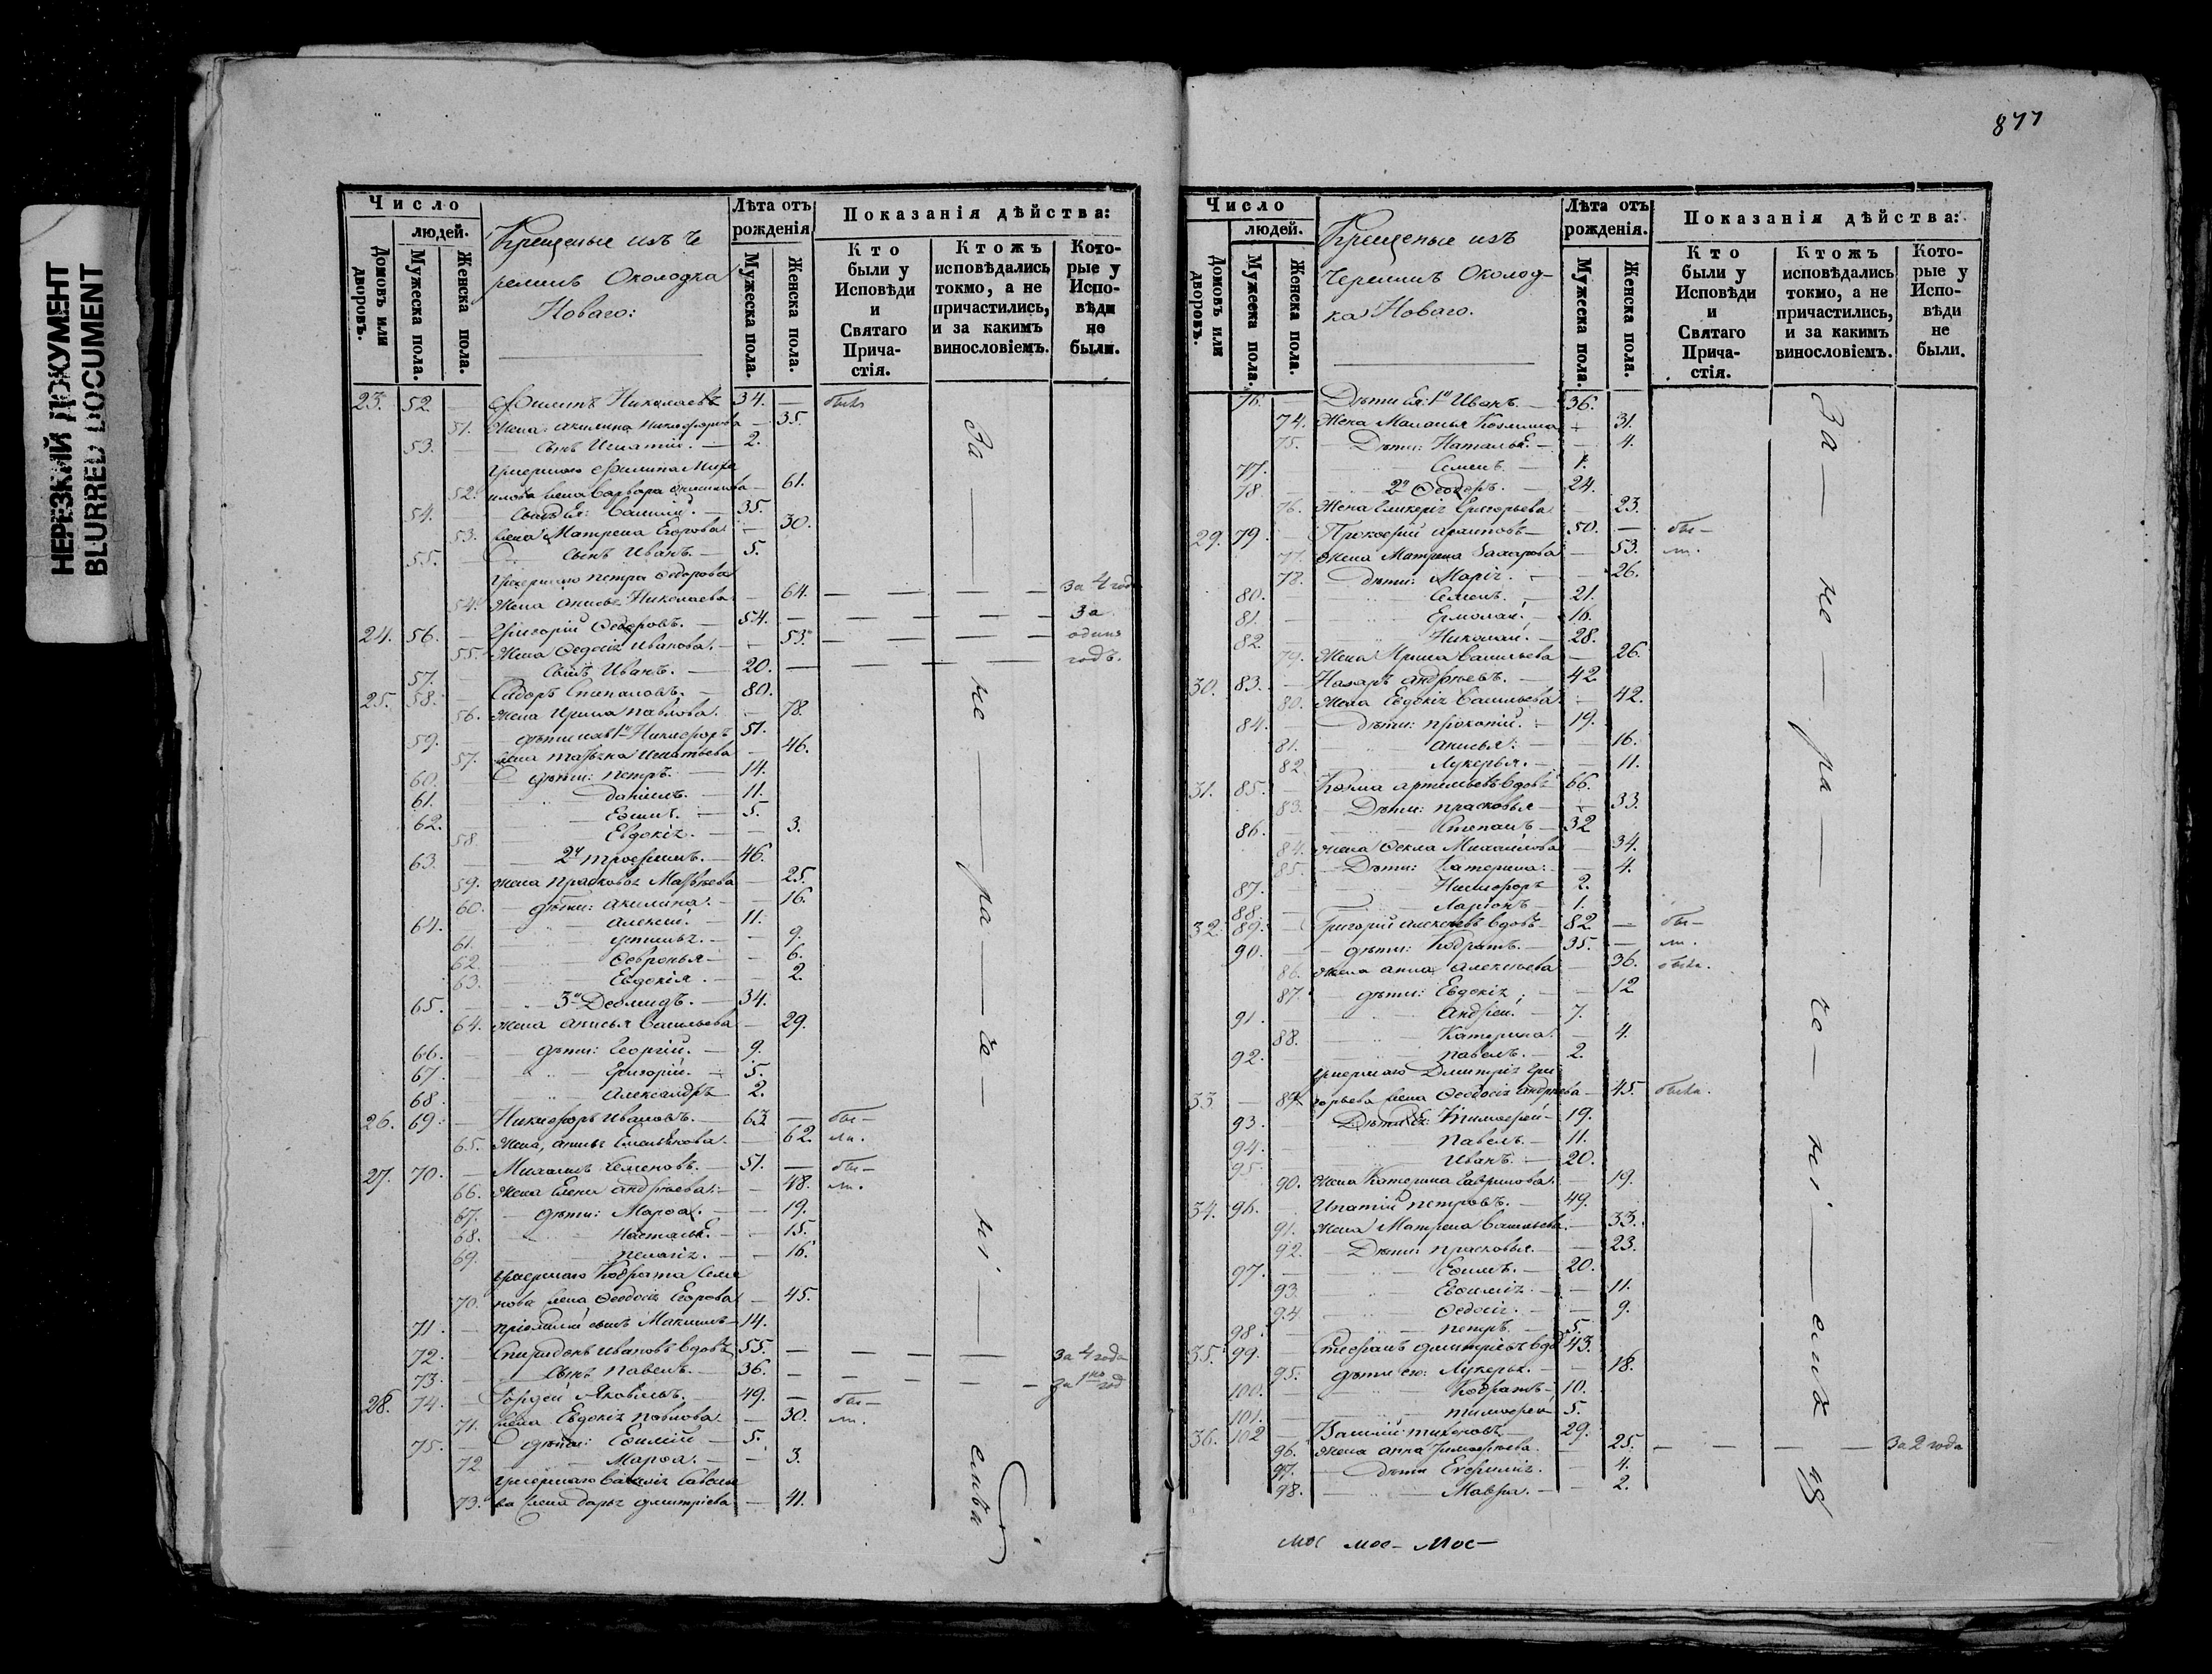 НЕРЕЗКИЙ ДОКУМЕНТ
BLURRED DOCUMENT
Число
людей.
Домовъ или дворовъ.
Мужеска пола.
Женска пола.
Крещеные изъ Че
ремисъ Околодка
Новаго:
Лѣта отъ рожденія
Мужеска пола.
Женска пола.
Показанія дѣйства:
Кто были у Исповѣди и Святаго Причастія.
Ктожъ исповѣдались токмо, а не причастились, и за какимъ винословіемъ.
Которые у Исповѣди не были.
23. 52. — Филипъ Николаевъ 34. — былъ
51. Жена: Акилина Никифорова — 35.
53. — Сынъ Игнатій. — 2.
Умершаго Филипа Миха
52. илова жена Варвара — 61.
54. — Сынъ Ея: Василий. — 35.
53. жена Матрена Егорова — 30.
55. — Сынъ Иванъ. — 5.
Умершаго Петра Федорова
54. Жена Анисья Николаева — 64. — — — — за 4 года
24. 56. — Григорій Федоровъ. — 54. — — — — за
55. Жена Федосія Иванова. — 53. — — — — одинъ
57. — Сынъ Иванъ. — 20. — — — — годъ.
25. 58. — Сидоръ Степановъ. — 80.
56. Жена Ирина Павлова. — 78.
59. — дѣти ихъ 1й Никифоръ 51.
57. жена Игнатьева — 46.
60. — дѣти: Петръ. — 14.
61. — Даніилъ. — 11.
62. — Ефимъ. — 5.
58. — Евдокія. — 3.
63. — 2й Трофимъ. — 46.
59. Жена Прасковья Матвѣева — 25.
60. — дѣти: Акилина. — 16.
64. — Алексій. — 11.
61. — Устинья. — 9.
62. — Февронья — 6.
63. — Евдокія. — 2.
65. — 3й Деомидъ. — 34.
64. Жена Анисья Васильева — 29.
66. — дѣти: Георгій. — 9.
67. — Григорій. — 5.
68. — Александръ — 2.
26. 69. — Никифоръ Ивановъ. — 63 — бы–
65. Жена, Анисья Емельянова. — 62. ли.
27. 70. — Михаилъ Семеновъ. — 51. — бы–
66. Жена Елена Андреева: — 48. ли.
67. — дѣти: Марфа. — 19.
68. — Наталья. — 15.
69. — Пелагія. — 16.
Умершаго Кодрата Семе
70. нова жена Феодосія Егорова — 45.
71. — пріемный сынъ Максимъ — 14.
72. — Спиридонъ Ивановъ вдовъ 55. — — — — за 4 года
73. — Сынъ Павелъ. — 36. — — — — за 1но год
28. 74. — Гордей Яковлевъ. — 49. — бы–
71. жена Евдокія Павлова — 30. ли.
75. — дѣти: Ефимій — 5.
72. — Марфа. — 3.
Умершаго Василія Савель
73. ва жена Дарья Дмитріева — 41.
За — не — ра — че — ні — емъ
877
Число
людей.
Домовъ или дворовъ.
Мужеска пола.
Женска пола.
Крещеные изъ
Черемисъ Околод–
ка Новаго.
Лѣта отъ рожденія.
Мужеска пола.
Женска пола.
Показанія дѣйства:
Кто были у Исповѣди и Святаго Причастія.
Ктожъ исповѣдались токмо, а не причастились, и за какимъ винословіемъ.
Которые у Исповѣди не были.
76. — Дѣти Ея: 1й Иванъ. — 36.
74. Жена Маланья Козмина — 31.
75. — Дѣти: Наталья. — 4.
77. — Семенъ. — 1.
78. — 2й Федоръ. — 24.
76. Жена Гликерія Григорьева — 23.
29. 79. — Прокофій Архиповъ — 50. — бы–
77. Жена Матрена Захарова — 53. ли.
78. — дѣти: Марія. — 26.
80. — Семенъ. — 21.
81. — Ермолай. — 16.
82. — Николай. — 28.
79. Жена Ирина Васильева — 26.
30. 83. — Назаръ Андреевъ. — 42
80. Жена Евдокія Васильева — 42.
84. — дѣти: Прокопій. — 19.
81. — Анисья. — 16.
82. — Лукерья. — 11.
31. 85. — Козма Артемьевъ вдовъ 66.
83. — Дѣти: Прасковья — 33.
86. — Степанъ — 32
84. Жена Фекла Михайлова — 34.
85. — Дѣти: Катерина: — 4.
87. — Никифоръ 2.
88. — Ларіонъ — 1.
32. 89. — Григорій Алексѣевъ вдовъ — 82 — бы–
90. — дѣти: Кодратъ. — 35. — ли.
86. Жена Анна Алексѣева — 36. была.
87. — дѣти: Евдокія, — 12
91. — Андрей. — 7.
88. — Катерина. — 4.
92. — Павелъ. — 2.
Умершаго Дмитрія Гри
33 — 89. горьева жена Феодосія Андреева — 45. была.
93. — Дѣти Ея: Тимофей — 19.
94. — Павелъ. — 11.
95. — Иванъ. — 20.
90. Жена Катерина Гаврилова. — 19.
34. 96. — Ипатій Петровъ. — 49.
91. Жена Матрена Васильева. — 33.
92. — Дѣти: Прасковья. — 23.
97. — Ефимъ. — 20.
93. — Евфимія. — 11.
94. — Федосія. — 9.
98. — Петръ. — 5.
35. 99. — Стефанъ Дмитріевъ вдо 43.
95. — дѣти его: Лукерья. — 18.
100. — Кодратъ — 10.
101. — Тимофей 5.
36. 102 — Василій — 29.
96. Жена Анна Тимофеева. — 25. — — — — за 2 года
97. — дѣти Евфимія. — 4.
98. — Мавра. — 2.
За — не — ра — че — ні — емъ
мос мос– Мос–